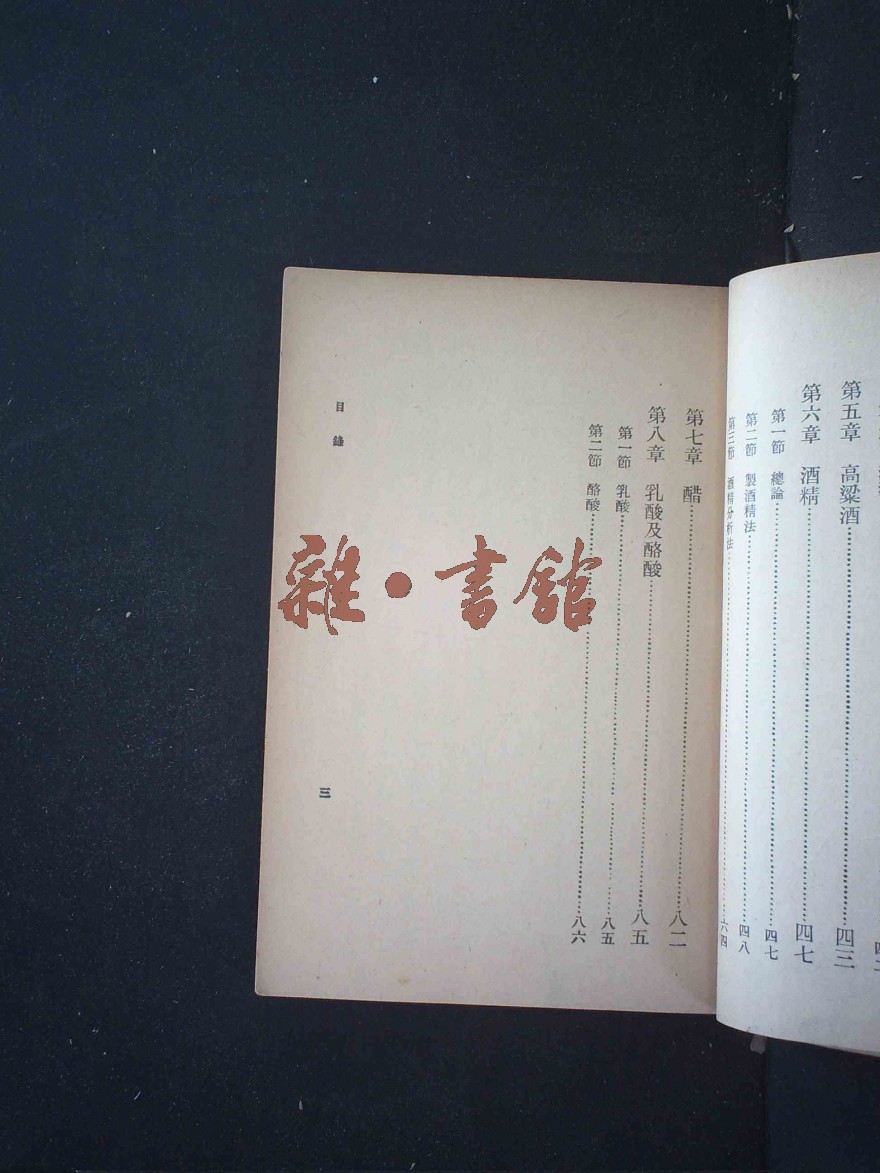 第五章 高粱酒……四三
第六章 酒精……四七
第一節 總論……四七
第二節 製酒精法……四八
第三節 酒精分析法……六四
第七章 醋……八二
第八章 乳酸及酪酸……八五
第一節 乳酸……八五
第二節 酪酸……八六
目錄
三
雜·書館